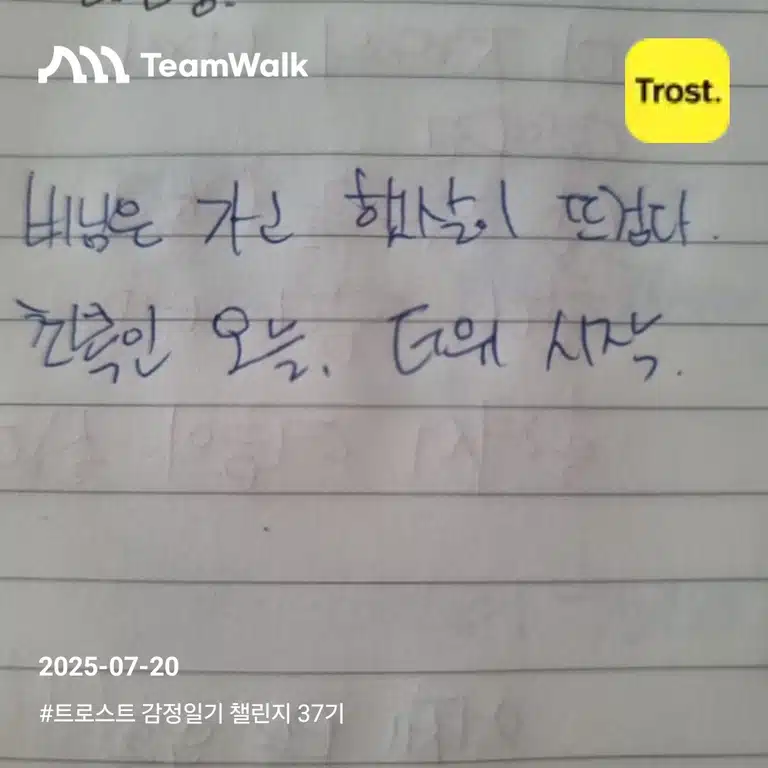 TeamWalk
Trost.
비님은 가고 햇살이 뜨겁다.
오늘. 더위 시작.
2025-07-20
#트로스트 감정일기 챌린지 37기